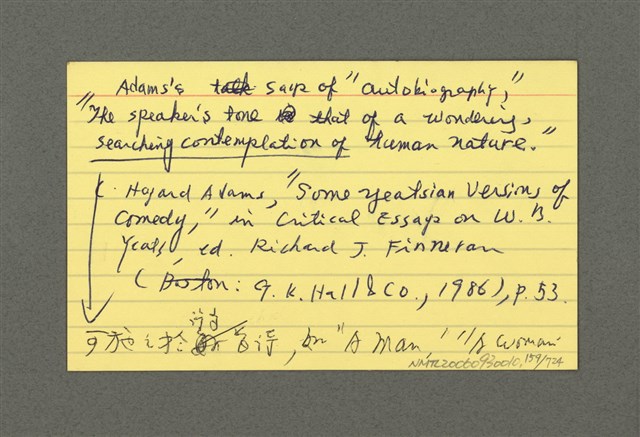 Adams's talk says of "autobiography,"
"The speaker's tone is that of a wondering,
searching contemplation of human nature."
Hazard Adams, "Some Yeatsian Versions of
Comedy," in Critical Essays on W. B.
Yeats, ed. Richard J. Finneran
(Boston: G. K. Hall & Co., 1986), p. 53.
可施之於 許多詩, "A Man" "A Woman
NMTL20060930010, 159/724